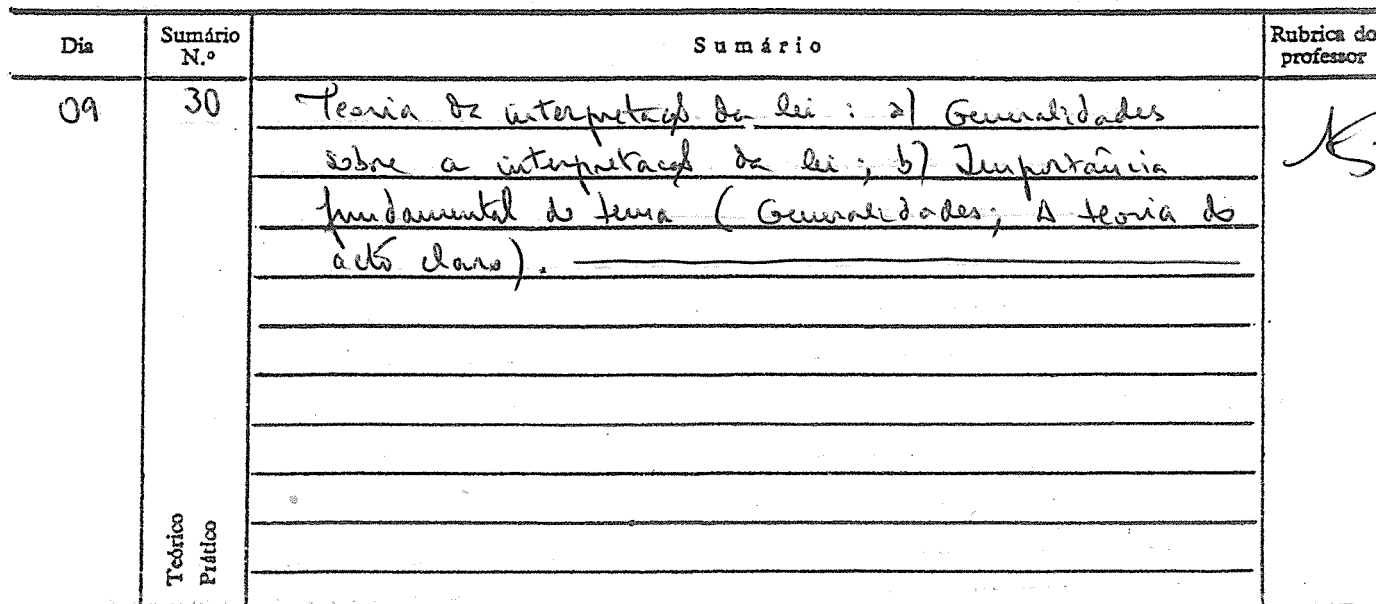 Dia Sumário N.º Sumário Rubrica do professor
09 30 Teoria da interpretação da lei : a) Generalidades
sobre a interpretação da lei ; b) Importância
fundamental do tema ( Generalidades; A teoria do
acto claro).
Teórico
Prático